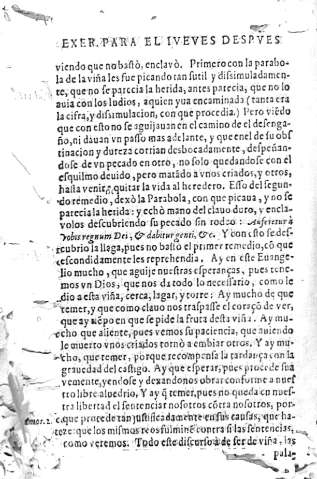 EXER. PARA EL IVEVES DESPVES
viendo que no bastò, enclavò. Primero con la parabo-
la de la viña les fue picando tan sutil y dissimuladamen-
te, que no se parecia la herida, antes parecia, que no lo
auia con los Iudios, aquien yua encaminada (tanta era
la cifra, y dissimulacion, con que procedia.) Pero viẽdo
que con esto no se aguijauan en el camino de el desenga-
ño, ni dauan vn passo mas adelante, y que nel de su obs-
tinacion y dureza corrian desbocadamente, despeñan-
dose de vn pecado en otro, no solo quedandose con el
esquilmo deuido, pero matãdo à vnos criados, y otros,
hasta venir a quitar la vida al heredero. Esso del segun-
do remedio, dexò la Parabola, con que picaua, y no se
parecia la herida: y echò mano del clauo duro, y encla-
volos descubriendo su pecado sin rodeo: Auferetur à
vobis regnum Dei, & dabitur genti, &c. Y con esto se des-
cubrio la llaga, pues no bastò el primer remedio, cõ que
escondidamente les reprehendia. Ay en este Euange-
lio mucho, que aguije nuestras esperanças, pues tene-
mos vn Dios, que nos da todo lo necessario, como le
dio a esta viña, cerca, lagar, y torre: Ay mucho de que
temer, y que como clauo nos traspasse el coraçõ de ver,
que ay tiẽpo en que se pide la fruta desta viña. Ay mu-
cho que aliente, pues vemos su paciencia, que auiendo
le muerto vnos criados tornò a embiar otros. Y ay mu-
cho, que temer, porque recompensa la tardança con la
grauedad del castigo. Ay que esperar, pues procede sua
vemente, yendose y dexandonos obrar conforme a nues
tro libre aluedrio, Y ay q̃ temer, pues no queda en nues
tra libertad el sentenciar nosotros cõtra nosotros, por-
que procede tan justificadamente en sus causas, que ha-
ze: que los mismos reos fulminẽ contra si las sentencias,
como veremos. Todo este discurso à de ser de viña, las
pala-